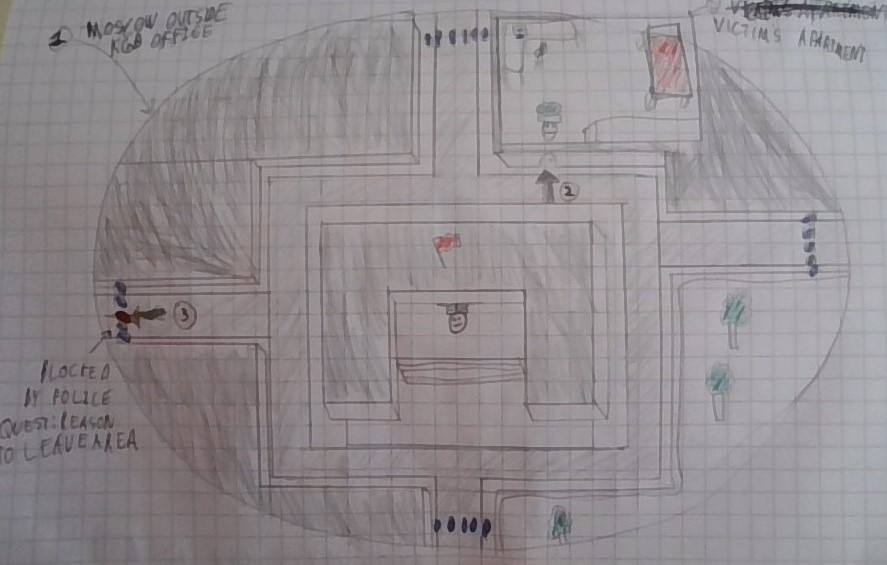 1 MOSCOW OUTSIDE
KGB OFFICE
VICTIMS APARTMENT
2
3
BLOCKED
BY POLICE
QUEST: REASON
TO LEAVE AREA